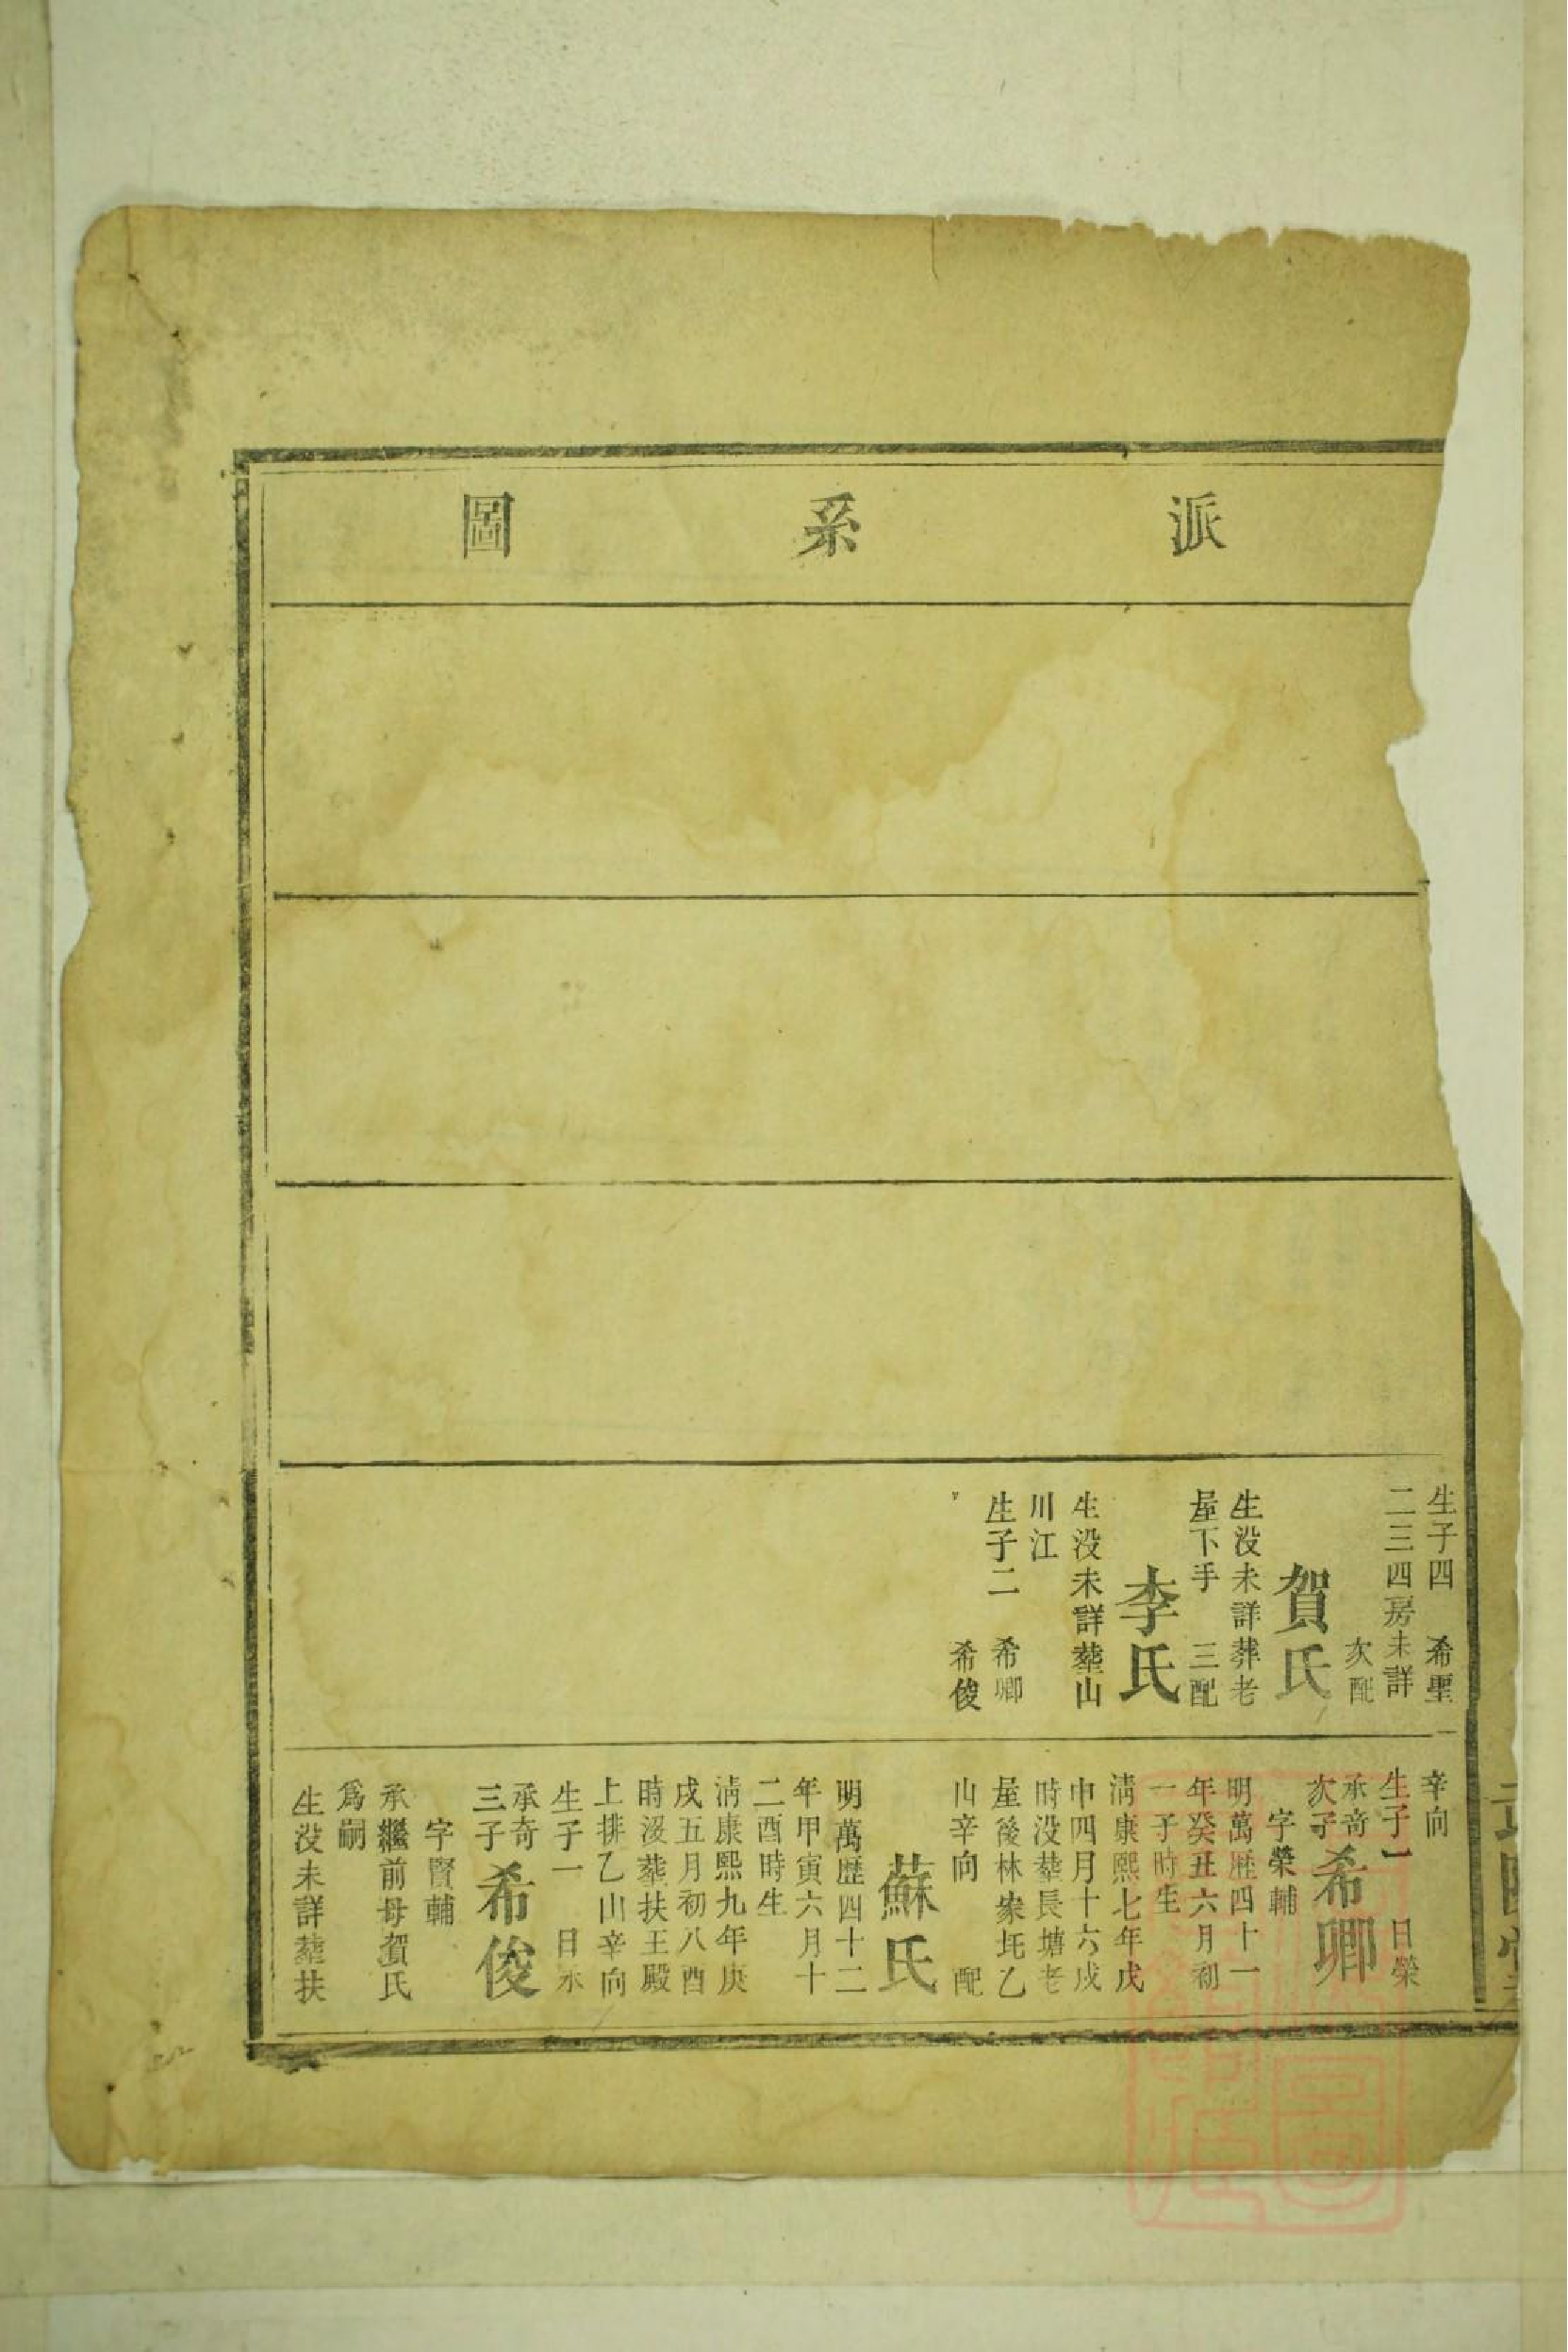 派系圖
生子四 希聖
二三四房未詳
次配
賀氏
生没未詳葬老
屋下手 三配
李氏
生没未詳塟山
川江
生子二 希卿
希俊
辛向
生子一 日榮
承奇
次子
希卿
字榮輔
明萬歷四十一
年癸丑六月初
一子時生
淸康熙七年戊
申四月十六戍
時没塟長塘老
屋後林衆坵乙
山辛向 配
蘇氏
明萬歷四十二
年甲寅六月十
二酉時生
淸康熙九年庚
戍五月初八酉
時没塟扶王殿
上排乙山辛向
生子一 日永
承奇
三子
希俊
字賢輔
承繼前母賀氏
爲嗣
生没未詳塟扶